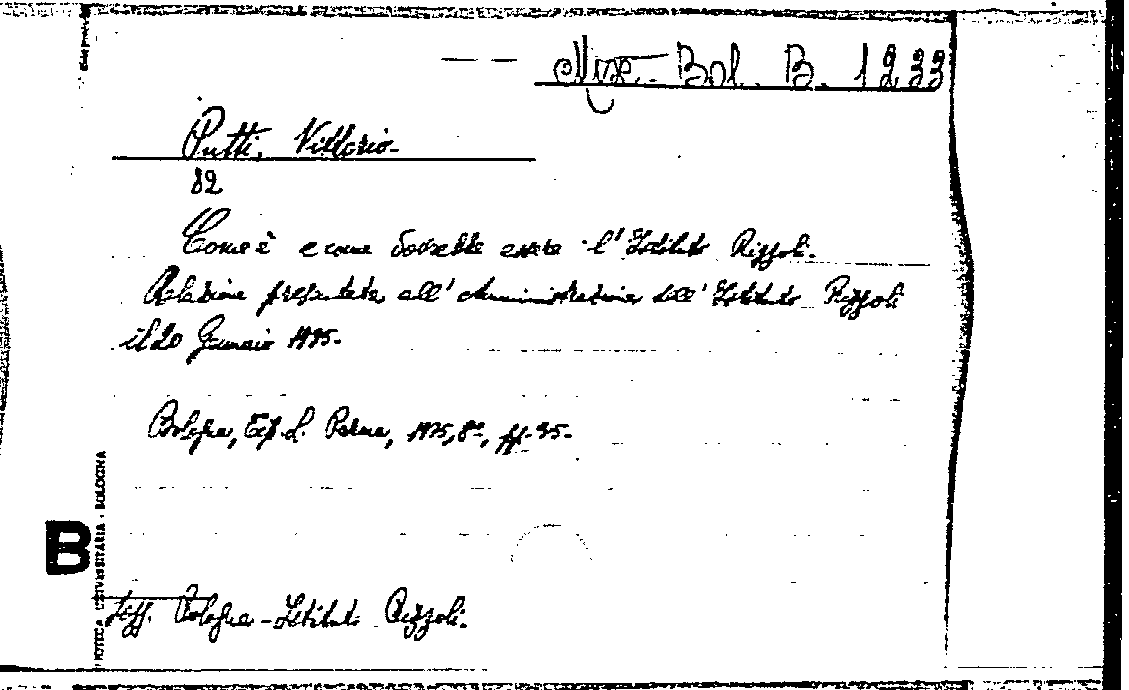 Misc. Bol. B. 1233
Putti, Vittorio-
82
Come è e come dovrebbe essere l'Istituto Rizzoli.
Relazione presentata all'Amministrazione dell'Istituto Rizzoli
il 20 Gennaio 1915-
Bologna, Tip. L. Parma, 1915, 8º, pp. 35-
Sogg. Bologna - Istituto Rizzoli.
B
BIBLIOTECA UNIVERSITARIA - BOLOGNA